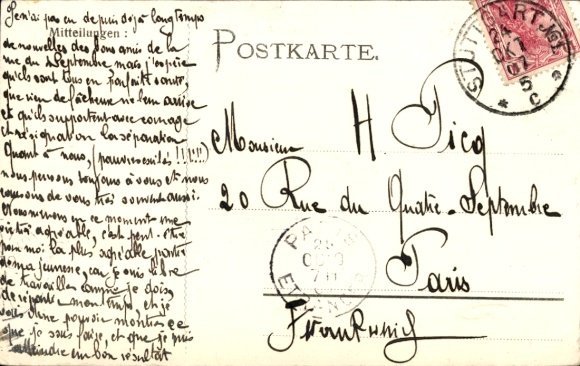 Je n'ai pas eu depuis déjà longtemps
Mitteilungen :
de nouvelles des bons amis de la
rue du 4 Septembre mais j'espère
qu'ils sont tous en parfaite santé,
que rien de fâcheux ne leur arrive
et qu'ils supportent avec courage
et résignation la séparation
Quant à nous, (pauvres exilés !!!!!)
nous pensons toujours à vous et nous
causons de vous très souvent aussi.
Nous menons en ce moment une
vie très agréable, c'est peut-être
pour moi la plus agréable partie
de ma jeunesse, car je suis libre
de travailler comme je dois,
de répartir mon temps, et je
vais donc pouvoir montrer ce
que je sais faire, et que je puis
atteindre un bon résultat
POSTKARTE.
STUTTGART
24
OKT
07
5
c
Monsieur H Picq
20 Rue du Quatre-Septembre
PARIS
25
ETRANGER
Paris
Frankreich